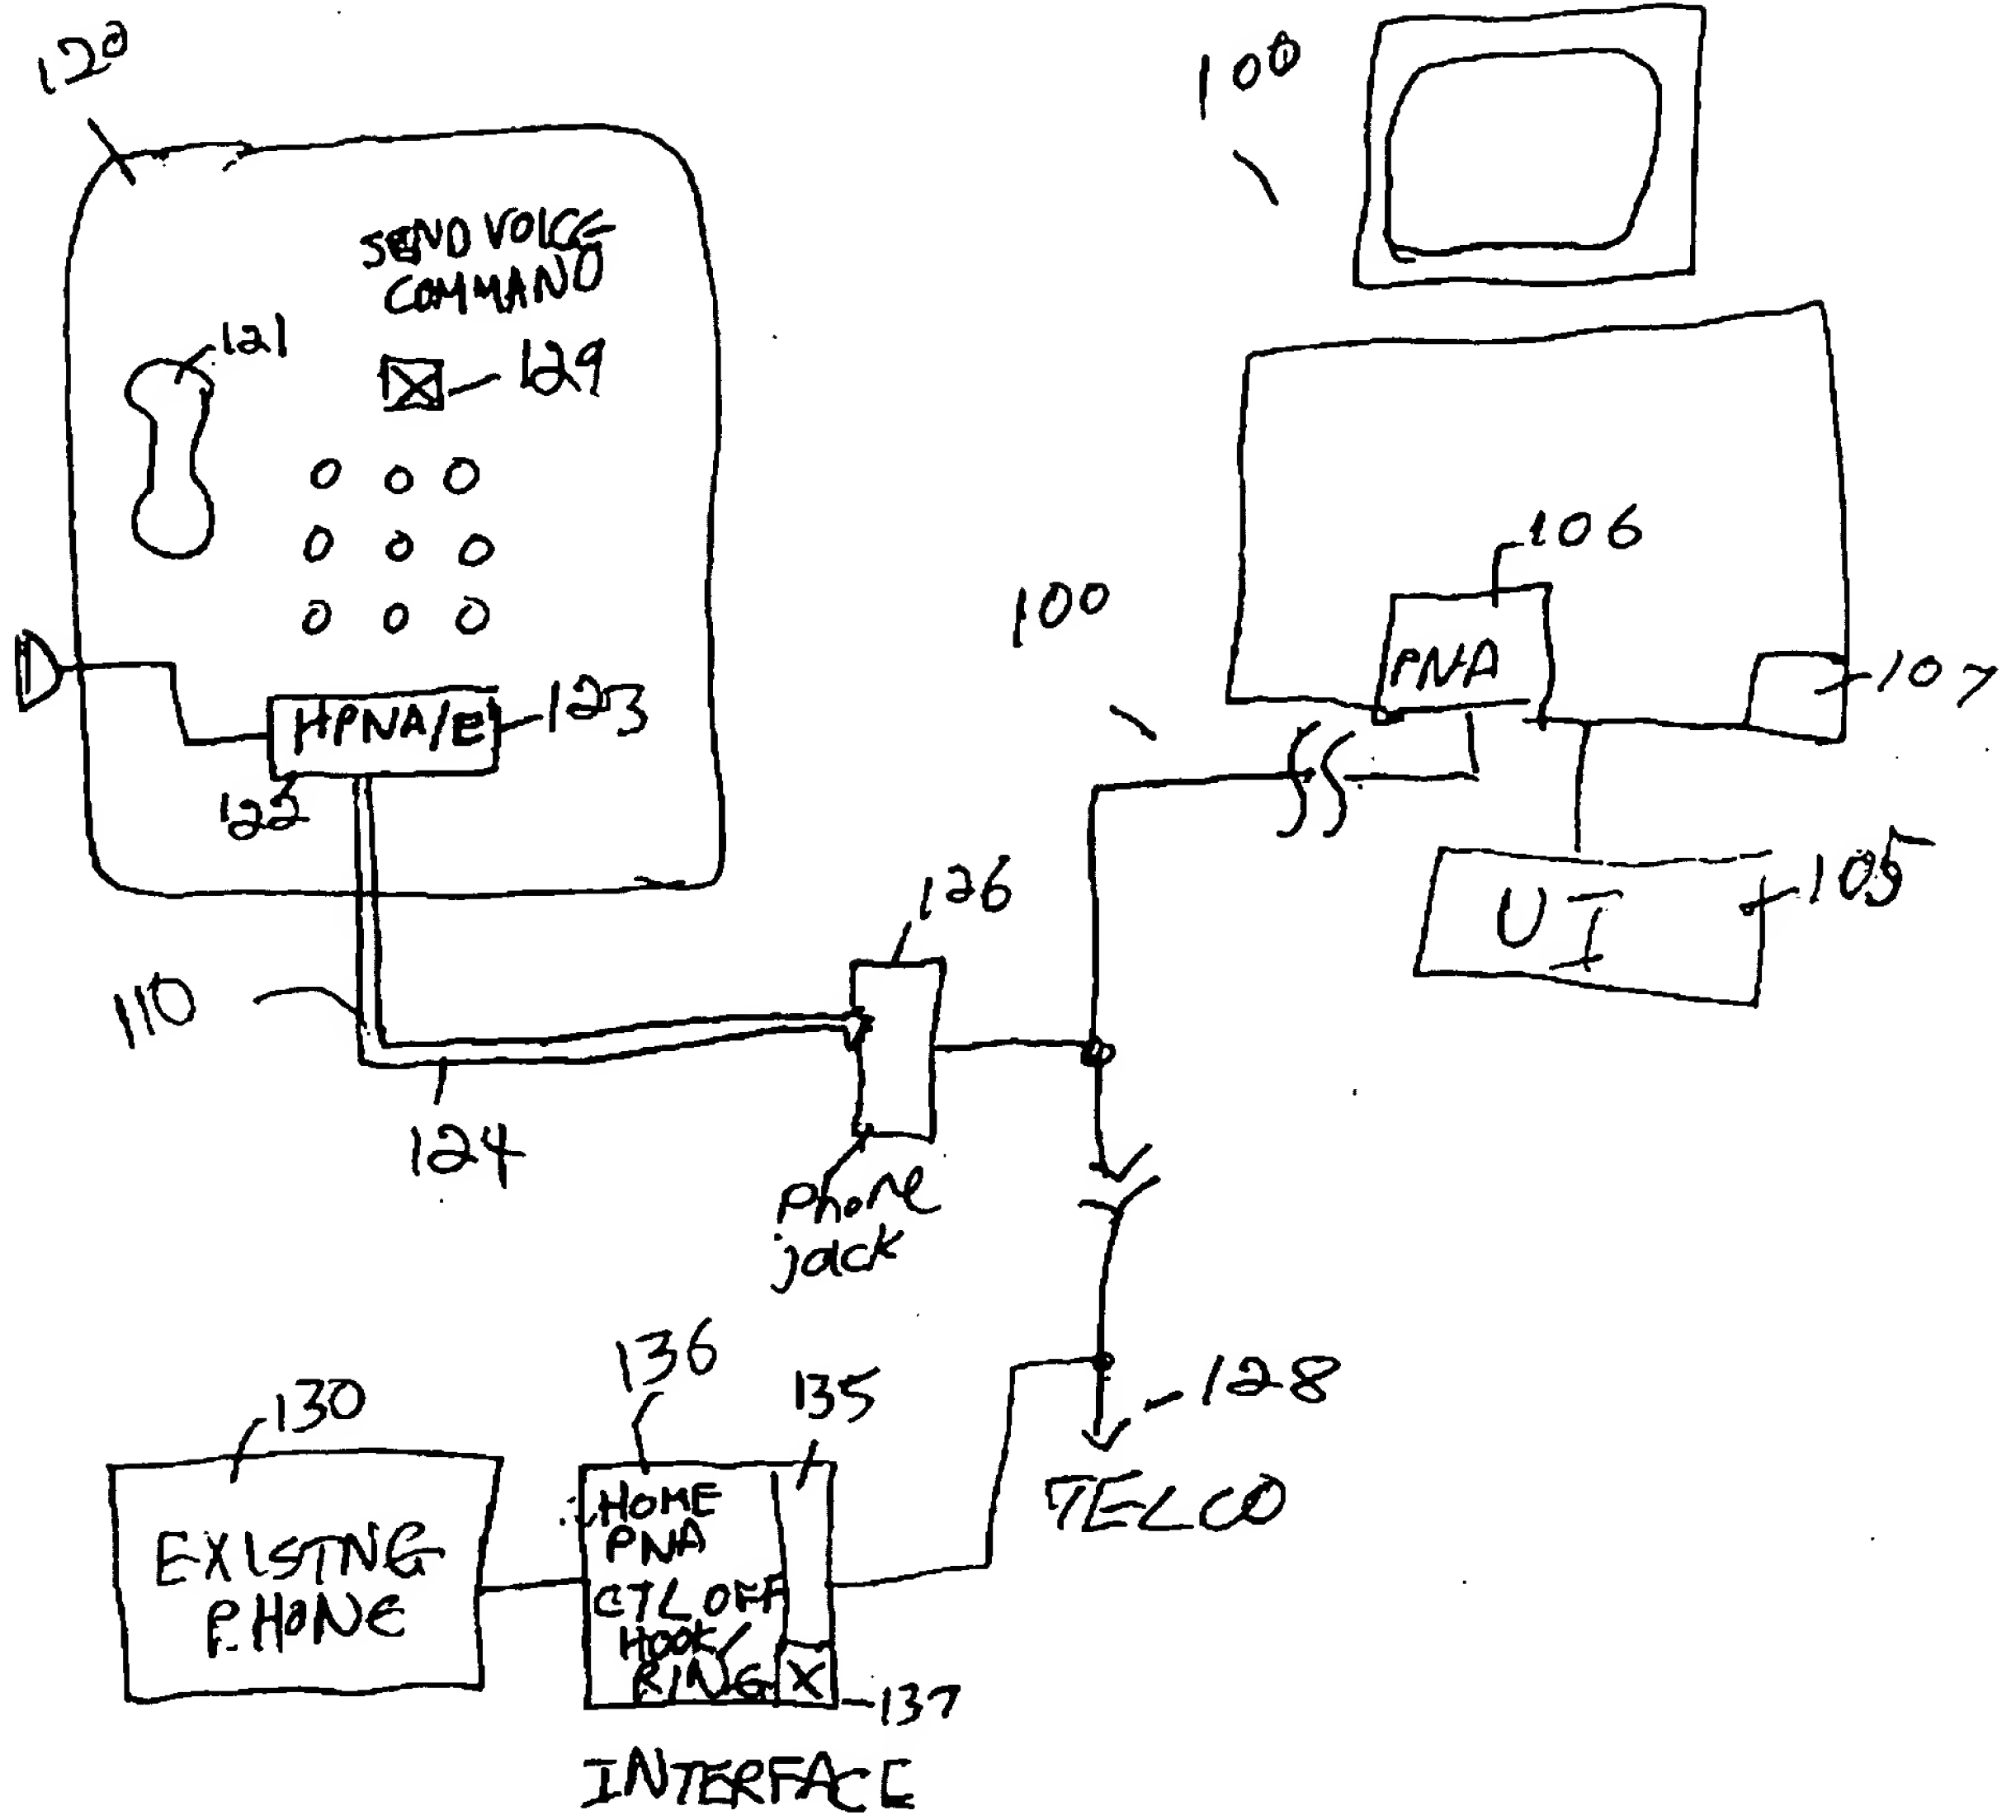 120
100
SEND VOICE
COMMAND
121
129
106
100
PNA
107
HPNA/E
123
122
105
UI
126
110
124
Phone
jack
136
135
128
130
TELCO
HOME
PNA
EXISTNG
PHONE
CTL OFF
HOOK/
RING
X
137
INTERFACE